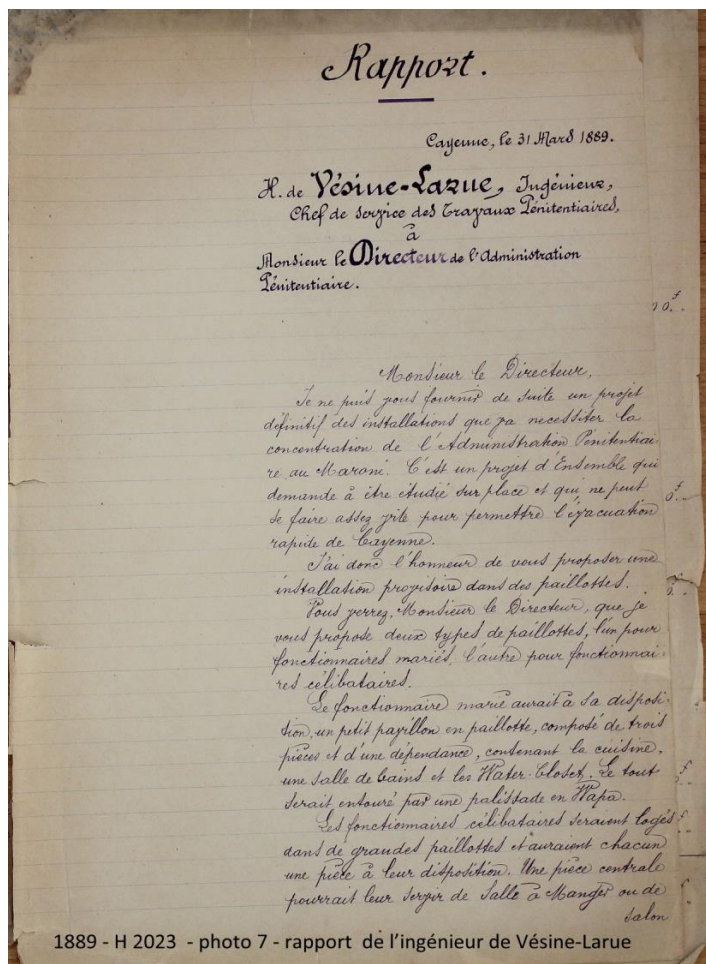 Rapport.
Cayenne, le 31 Mars 1889.
H. de Vésine-Larue, Ingénieur,
Chef de service des Travaux Pénitentiaires,
à
Monsieur le Directeur de l'Administration
Pénitentiaire.
Monsieur le Directeur,
Je ne puis vous fournir de suite un projet
définitif des installations que va necessiter la
concentration de l'Administration Pénitentiai
re au Maroni. C'est un projet d'Ensemble qui
demande à être étudié sur place et qui ne peut
se faire assez vite pour permettre l'évacuation
rapide de Cayenne.
J'ai donc l'honneur de vous proposer une
installation provisoire dans des paillottes.
Vous verrez, Monsieur le Directeur, que je
vous propose deux types de paillottes, l'un pour
fonctionnaires mariés, l'autre pour fonctionnai
res célibataires.
Le fonctionnaire marié aurait à sa disposi-
tion, un petit pavillon en paillotte, composé de trois
pièces et d'une dépendance, contenant la cuisine,
une salle de bains et les Water-Closet. Le tout
serait entouré par une palissade en Wapa.
Les fonctionnaires célibataires seraient logés
dans de grandes paillottes et auraient chacun
une pièce à leur disposition. Une pièce centrale
pourrait leur servir de Salle à Manger ou de
salon
1889 - H 2023 - photo 7 - rapport de l'ingénieur de Vésine-Larue